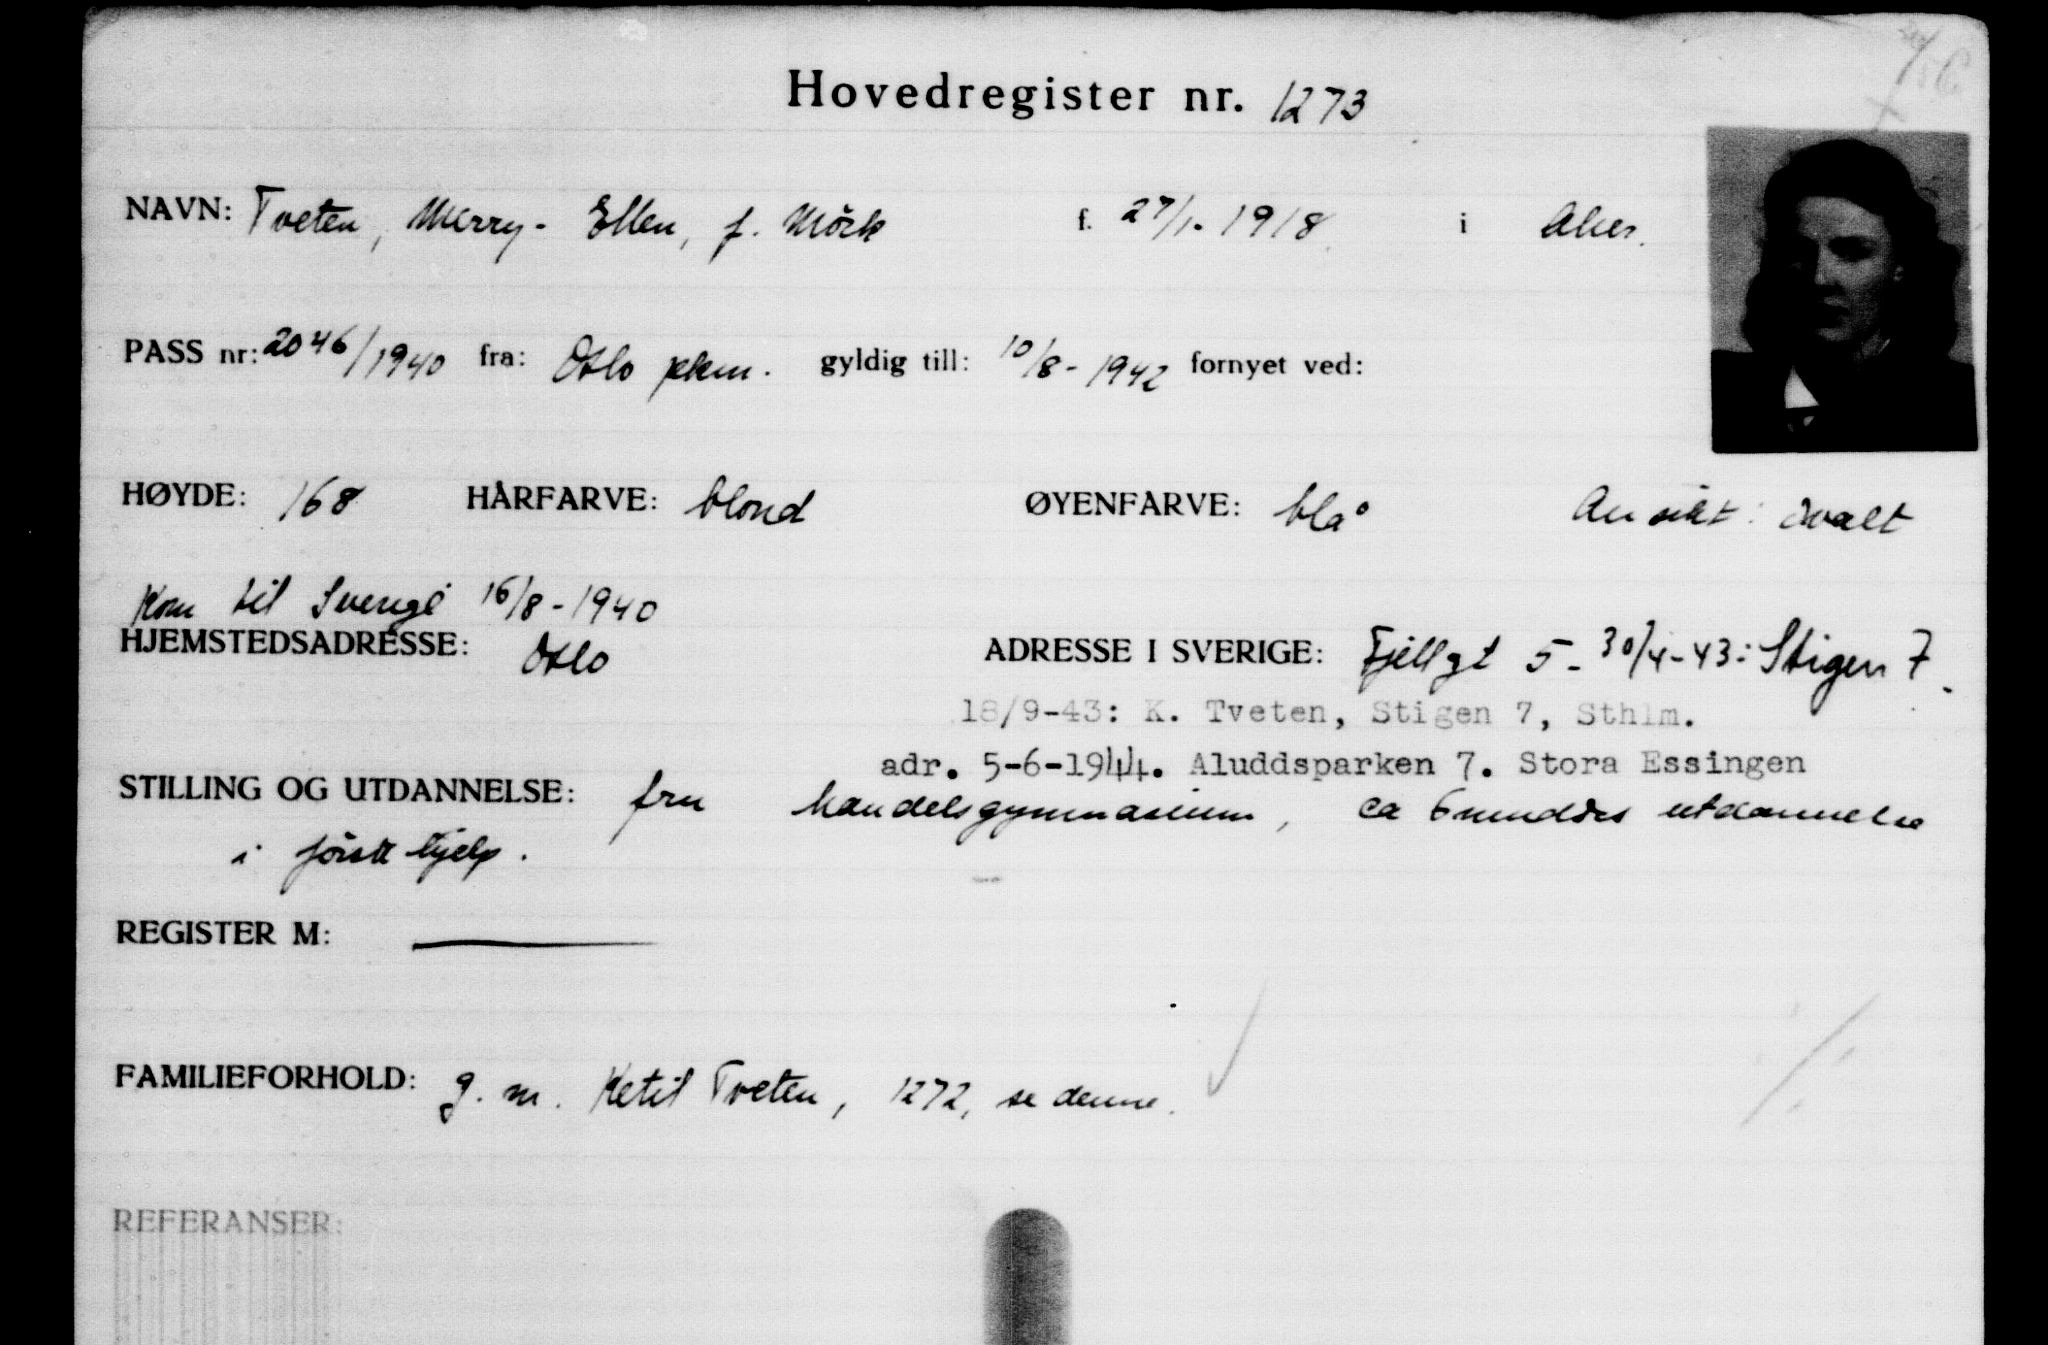 Hovedregister nr. 1273
NAVN: Tveten, Merry-Ellen, f. Mörk f. 27/1. 1918 i Aker.
PASS nr: 2046/1940 fra: Oslo pkm. gyldig till: 10/8-1942 fornyet ved:
HØYDE: 168 HÅRFARVE: blond ØYENFARVE: blå Ansikt: ovalt
Kom til Sverige 16/8-1940
HJEMSTEDSADRESSE: Oslo ADRESSE I SVERIGE: Fjellgt 5 - 30/4-43: Stigen 7.
18/9-43: K. Tveten, Stigen 7, Sthlm.
adr. 5-6-1944. Aluddsparken 7. Stora Essingen
STILLING OG UTDANNELSE: fru handelsgymnasium, ca 6 utdannelse
i förstehjelp.
REGISTER M:
FAMILIEFORHOLD: g. m. Ketil Tveten, 1272, se denne.
REFERANSER: